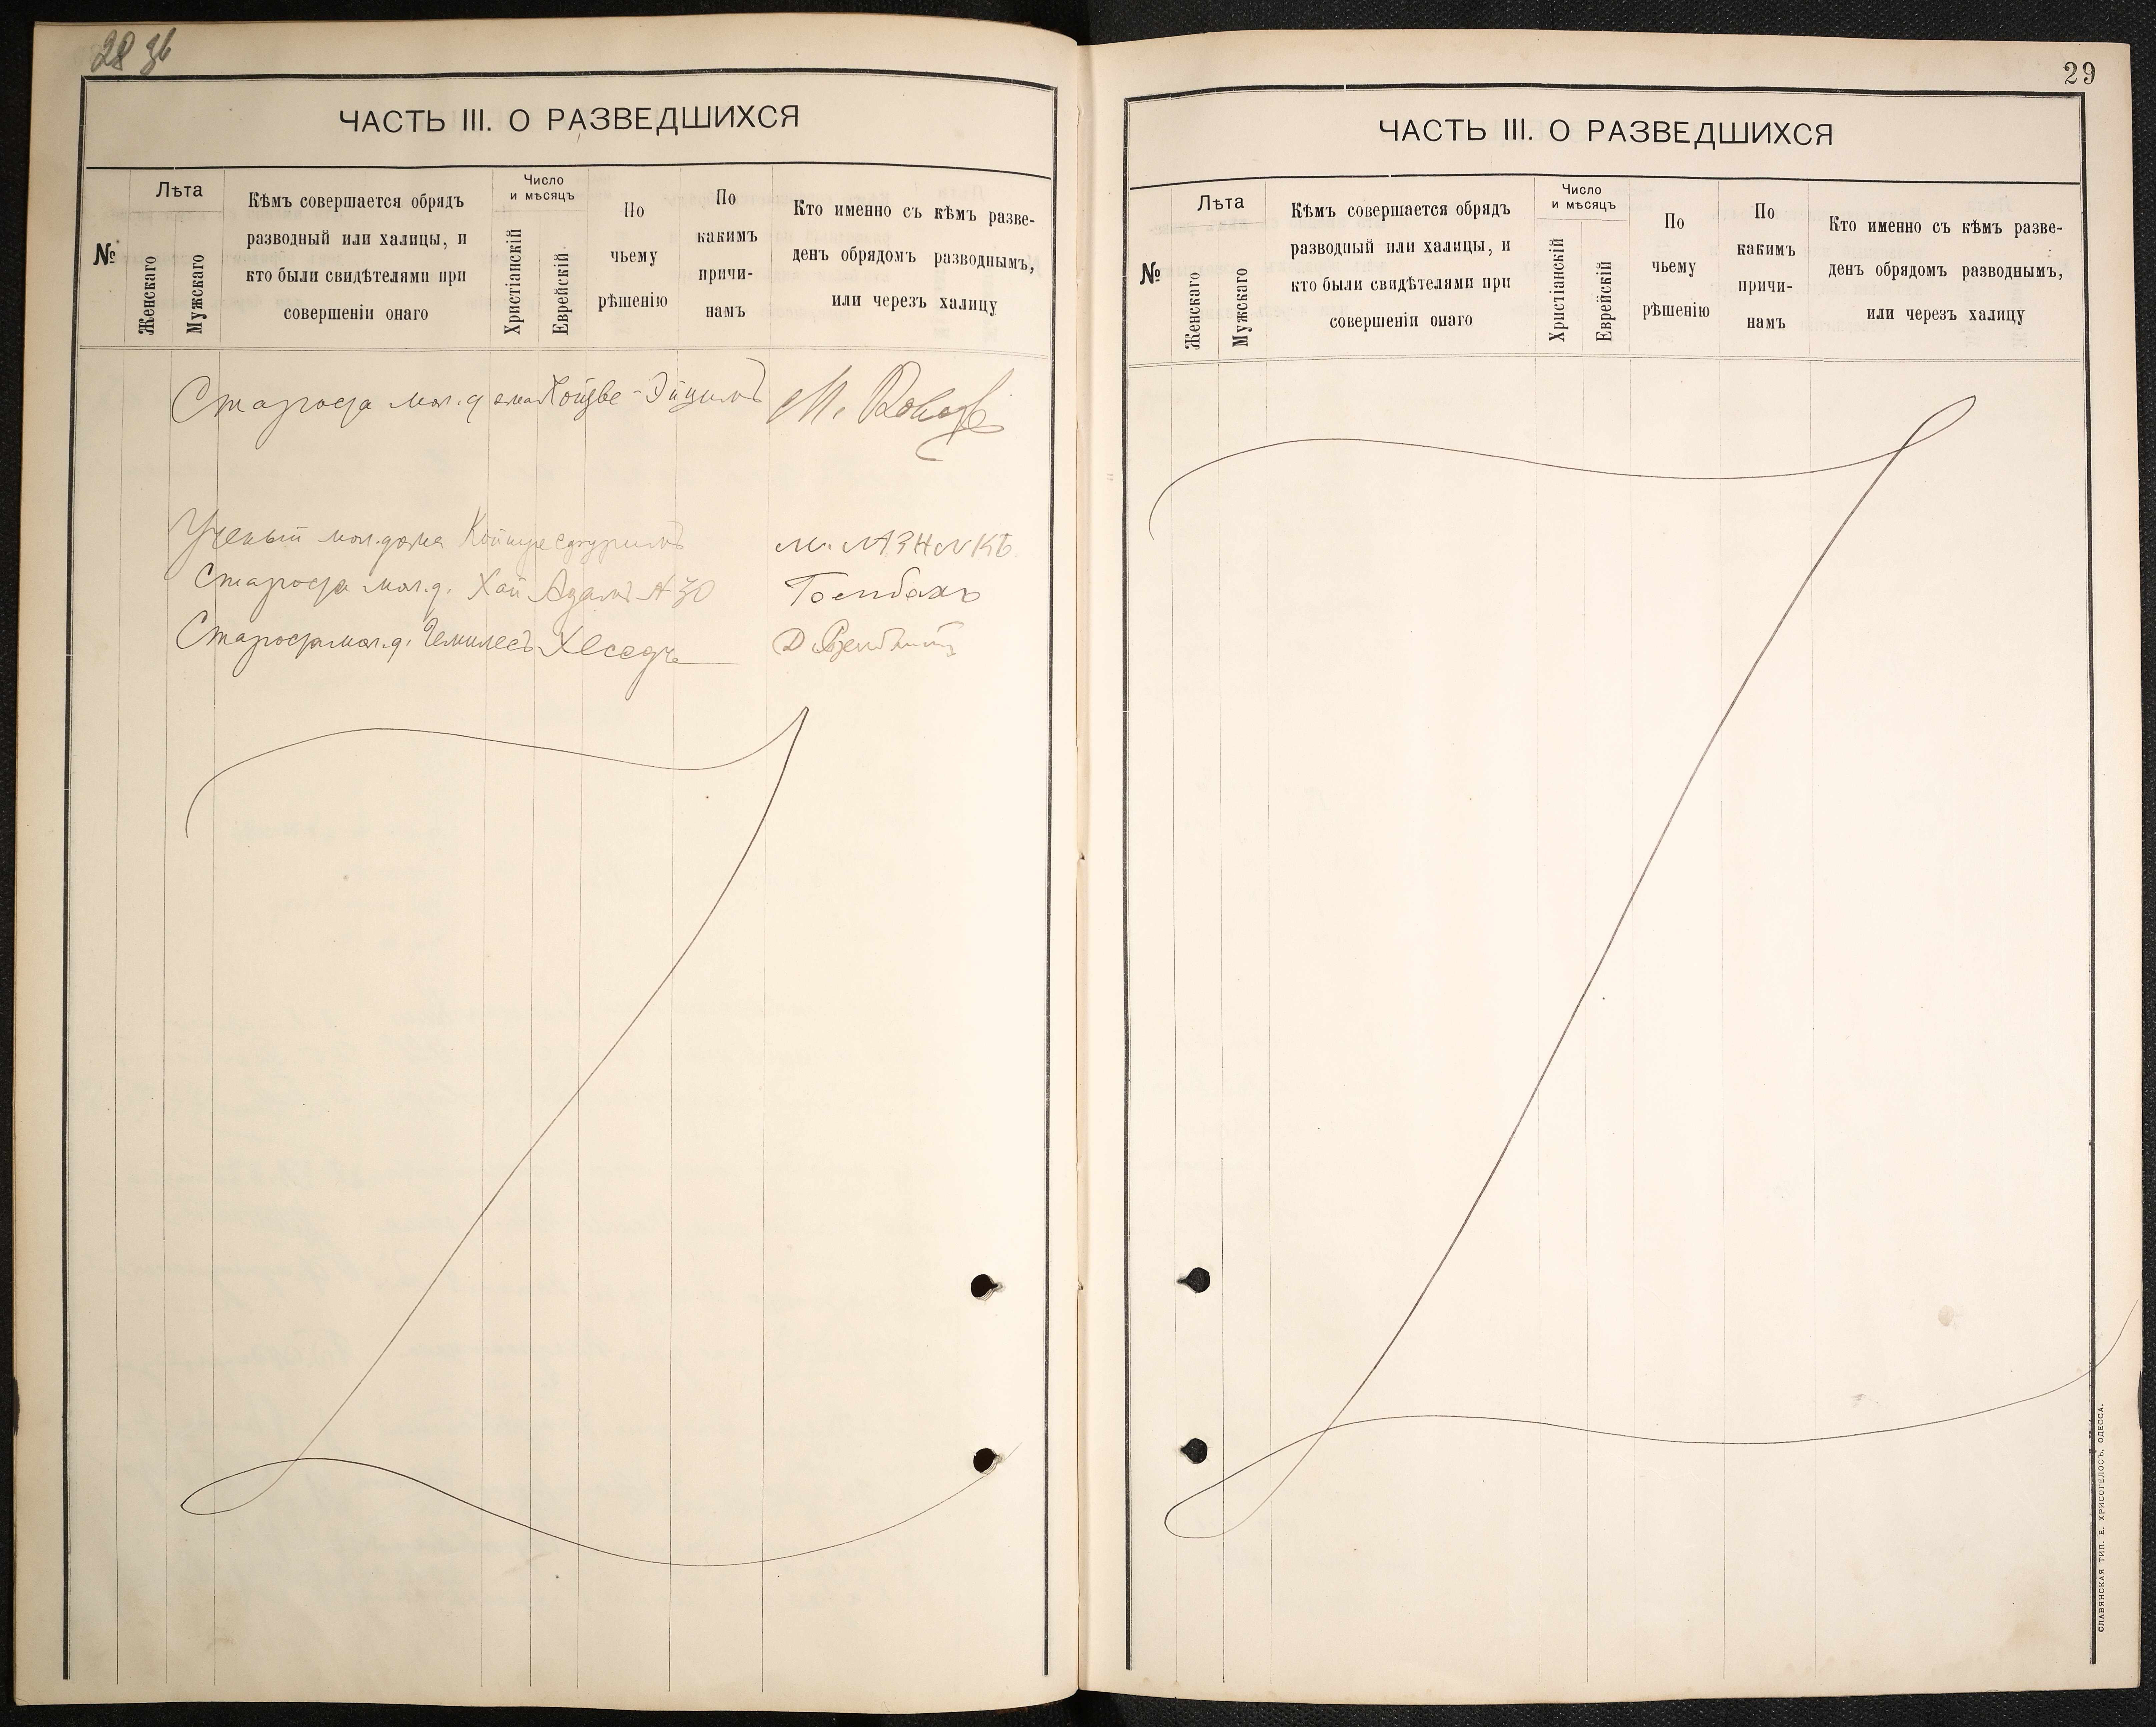 28 зв
ЧАСТЬ III. О РАЗВЕДШИХСЯ
№
Лѣта
Женскаго
Мужскаго
Кѣмъ совершается обрядъ
разводный или халицы, и
кто были свидѣтелями при
совершеніи онаго
Число
и мѣсяцъ
Христіанскій
Еврейскій
По
чьему
рѣшенію
По
какимъ
причи-
намъ
Кто именно съ кѣмъ разве-
денъ обрядомъ разводнымъ,
или черезъ халицу
Староста мол. дома Хойзве-Эйцимъ М.
Ученый мол. дома М. МАЗНИКЪ
Староста мол. д. Хай Адамъ А ЗО
Староста мол. д. Гемилесъ Хеседъ Д
29
ЧАСТЬ III. О РАЗВЕДШИХСЯ
№
Лѣта
Женскаго
Мужскаго
Кѣмъ совершается обрядъ
разводный или халицы, и
кто были свидѣтелями при
совершеніи онаго
Число
и мѣсяцъ
Христіанскій
Еврейскій
По
чьему
рѣшенію
По
какимъ
причи-
намъ
Кто именно съ кѣмъ разве-
денъ обрядомъ разводнымъ,
или черезъ халицу
СЛАВЯНСКАЯ ТИП. Е. ХРИСОГЕЛОСЪ, ОДЕССА.